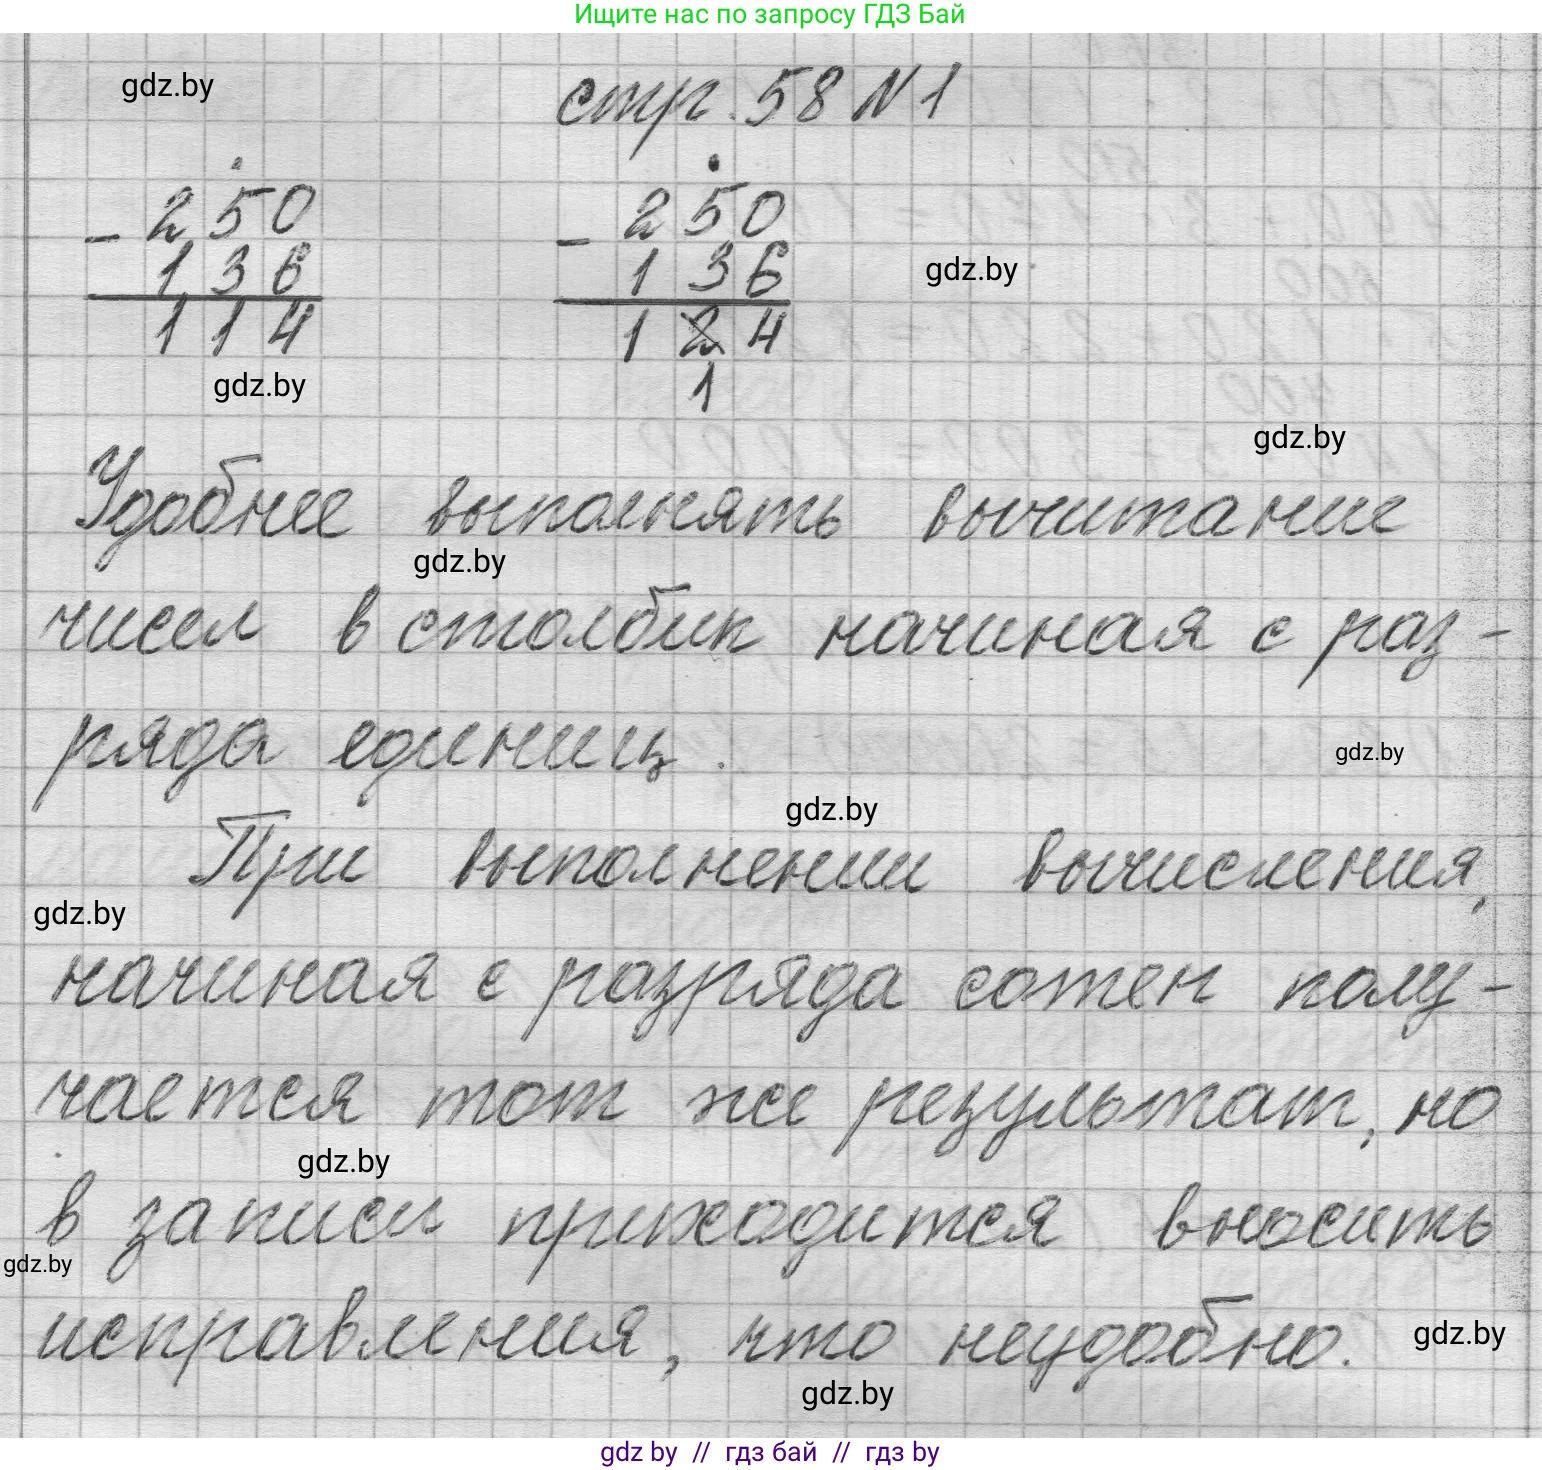 Ищите нас по запросу ГДЗ Бай
gdz.by
стр. 58 № 1
250 250
- 136 - 136
gdz.by
114 124
gdz.by
1
gdz.by
Удобнее выполнять вычитание
gdz.by
чисел в столбик начиная с раз-
ряда единиц.
gdz.by
gdz.by
При выполнении вычисления,
gdz.by
начиная с разряда сотен полу-
чается тот же результат, но
gdz.by
в записи приходится вносить
gdz.by
исправления, что неудобно.
gdz.by
gdz.by
gdz by // гдз бай // гдз by